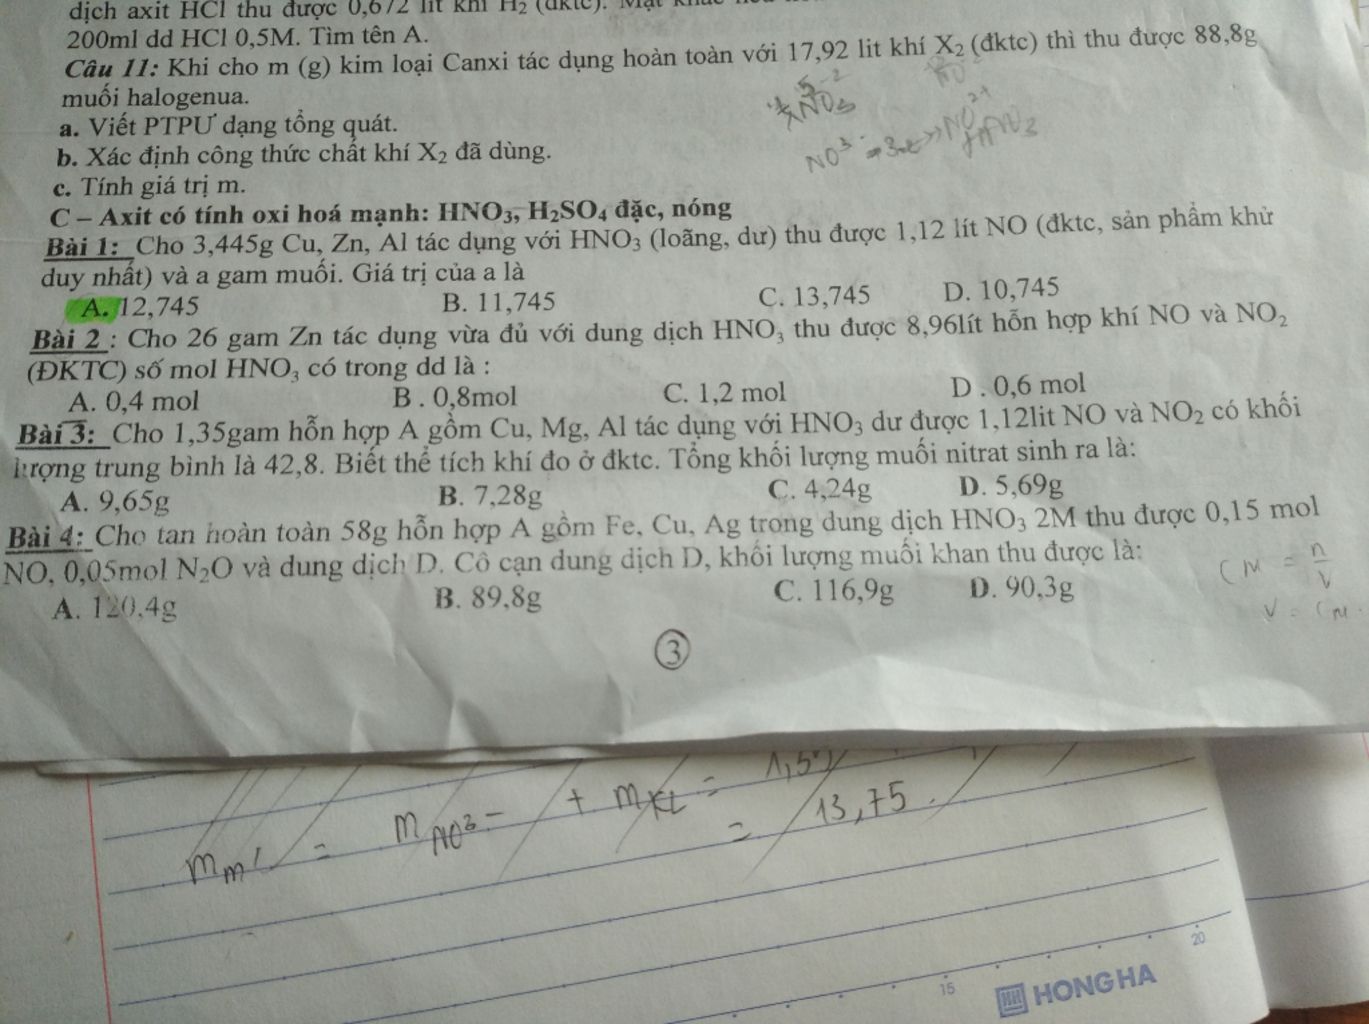 dịch axit HCl thu được 0,672 lít khí H₂ (đktc). Mặt khác
200ml dd HCl 0,5M. Tìm tên A.
Câu 11: Khi cho m (g) kim loại Canxi tác dụng hoàn toàn với 17,92 lit khí X₂ (đktc) thì thu được 88,8g
muối halogenua.
a. Viết PTPƯ dạng tổng quát.
b. Xác định công thức chất khí X₂ đã dùng.
c. Tính giá trị m.
C – Axit có tính oxi hoá mạnh: HNO₃, H₂SO₄ đặc, nóng
Bài 1: Cho 3,445g Cu, Zn, Al tác dụng với HNO₃ (loãng, dư) thu được 1,12 lít NO (đktc, sản phẩm khử
duy nhất) và a gam muối. Giá trị của a là
A. 12,745 B. 11,745 C. 13,745 D. 10,745
Bài 2 : Cho 26 gam Zn tác dụng vừa đủ với dung dịch HNO₃ thu được 8,96lít hỗn hợp khí NO và NO₂
(ĐKTC) số mol HNO₃ có trong dd là :
A. 0,4 mol B . 0,8mol C. 1,2 mol D . 0,6 mol
Bài 3: Cho 1,35gam hỗn hợp A gồm Cu, Mg, Al tác dụng với HNO₃ dư được 1,12lit NO và NO₂ có khối
lượng trung bình là 42,8. Biết thể tích khí đo ở đktc. Tổng khối lượng muối nitrat sinh ra là:
A. 9,65g B. 7,28g C. 4,24g D. 5,69g
Bài 4: Cho tan hoàn toàn 58g hỗn hợp A gồm Fe, Cu, Ag trong dung dịch HNO₃ 2M thu được 0,15 mol
NO, 0,05mol N₂O và dung dịch D. Cô cạn dung dịch D, khối lượng muối khan thu được là:
A. 120,4g B. 89,8g C. 116,9g D. 90,3g
CM = n/V
3
m m' = m NO³⁻ + m KL =
= 13,75
15 20
HONG HA